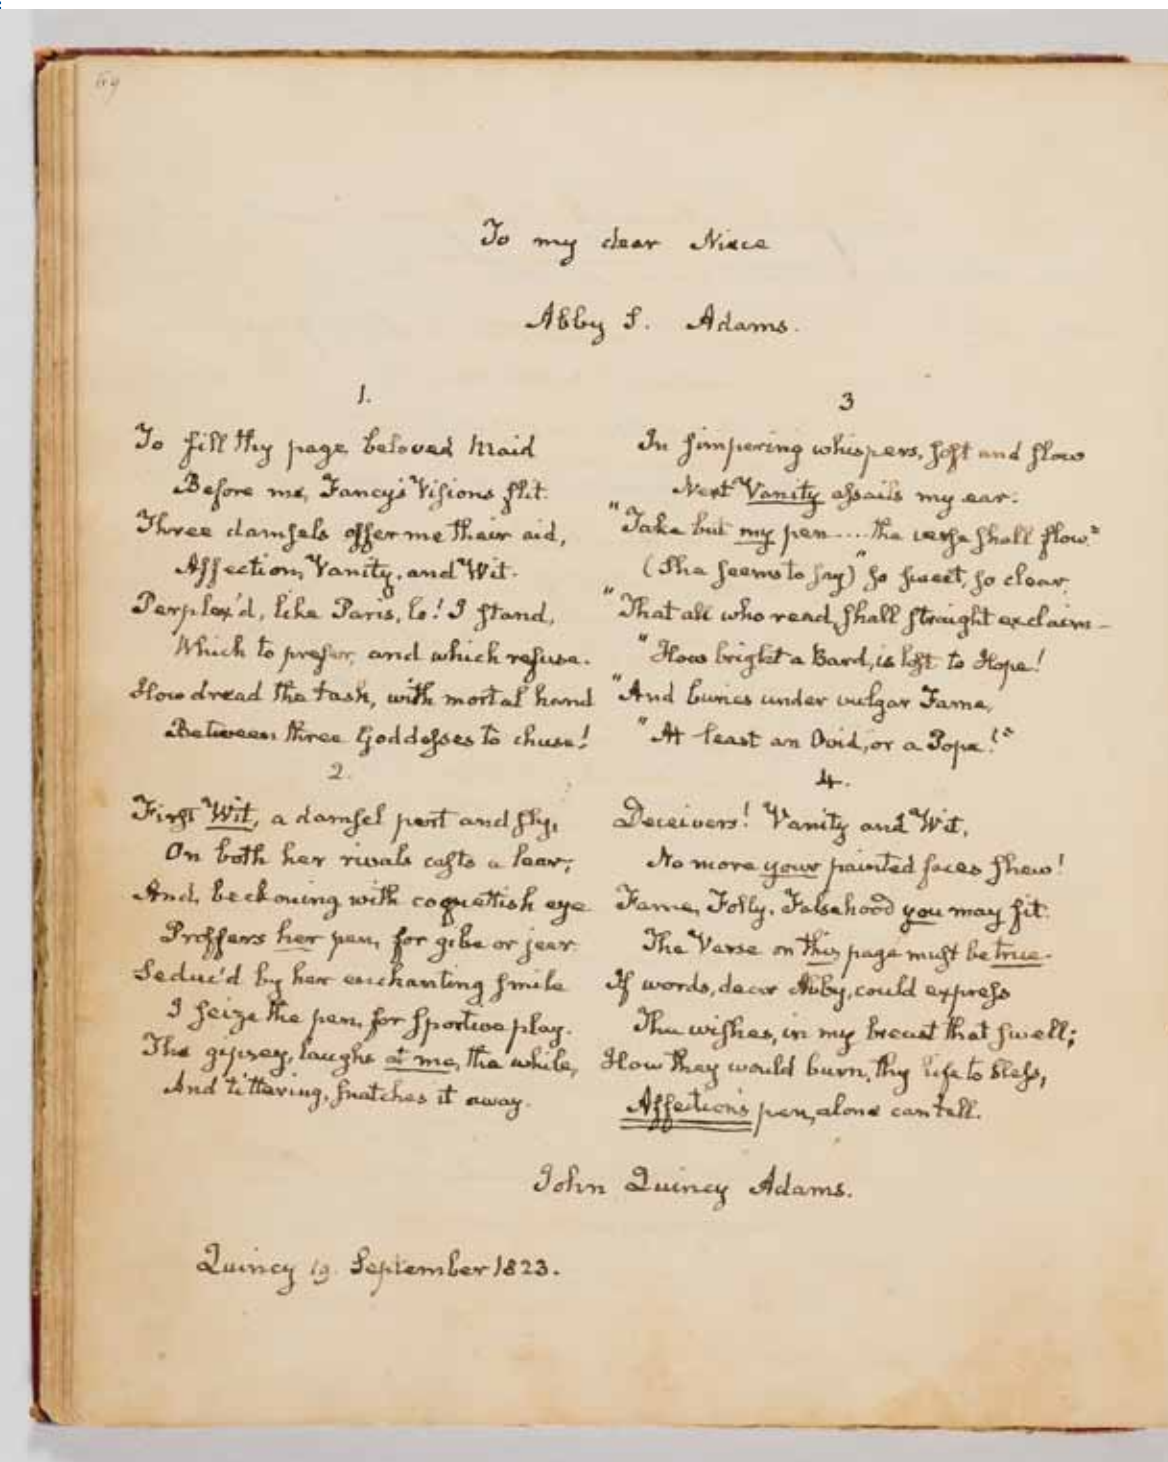 69
To my dear Niece
Abby S. Adams.
1.
To fill thy page, beloved Maid
Before me, Fancy's Visions flit.
Three damsels offer me their aid,
Affection, Vanity, and Wit.
Perplex'd, like Paris, lo! I stand,
Which to prefer, and which refuse.
How dread the task, with mortal hand
Between three Goddesses to chuse!
2.
First Wit, a damsel pert and sly,
On both her rivals casts a leer;
And, beckoning with coquettish eye
Proffers her pen, for gibe or jeer.
Seduc'd by her enchanting smile
I seize the pen, for sportive play.
The gipsey, laughs at me, the while,
And tittering, snatches it away.
3
In simpering whispers, soft and slow
Next Vanity assails my ear.
"Take but my pen .... the verse shall flow."
(She seems to say) "so sweet, so clear,
"That all who read, shall straight exclaim—
"How bright a Bard, is lost to Hope!
"And buries under vulgar Fame,
"At least an Ovid, or a Pope!"
4.
Deceivers! Vanity and Wit,
No more your painted faces shew!
Fame, Folly, Falsehood you may fit.
The Verse on this page must be true.
If words, dear Abby, could express
The wishes, in my breast that swell;
How they would burn, thy life to bless,
Affection's pen, alone can tell.
John Quincy Adams.
Quincy 19. September 1823.